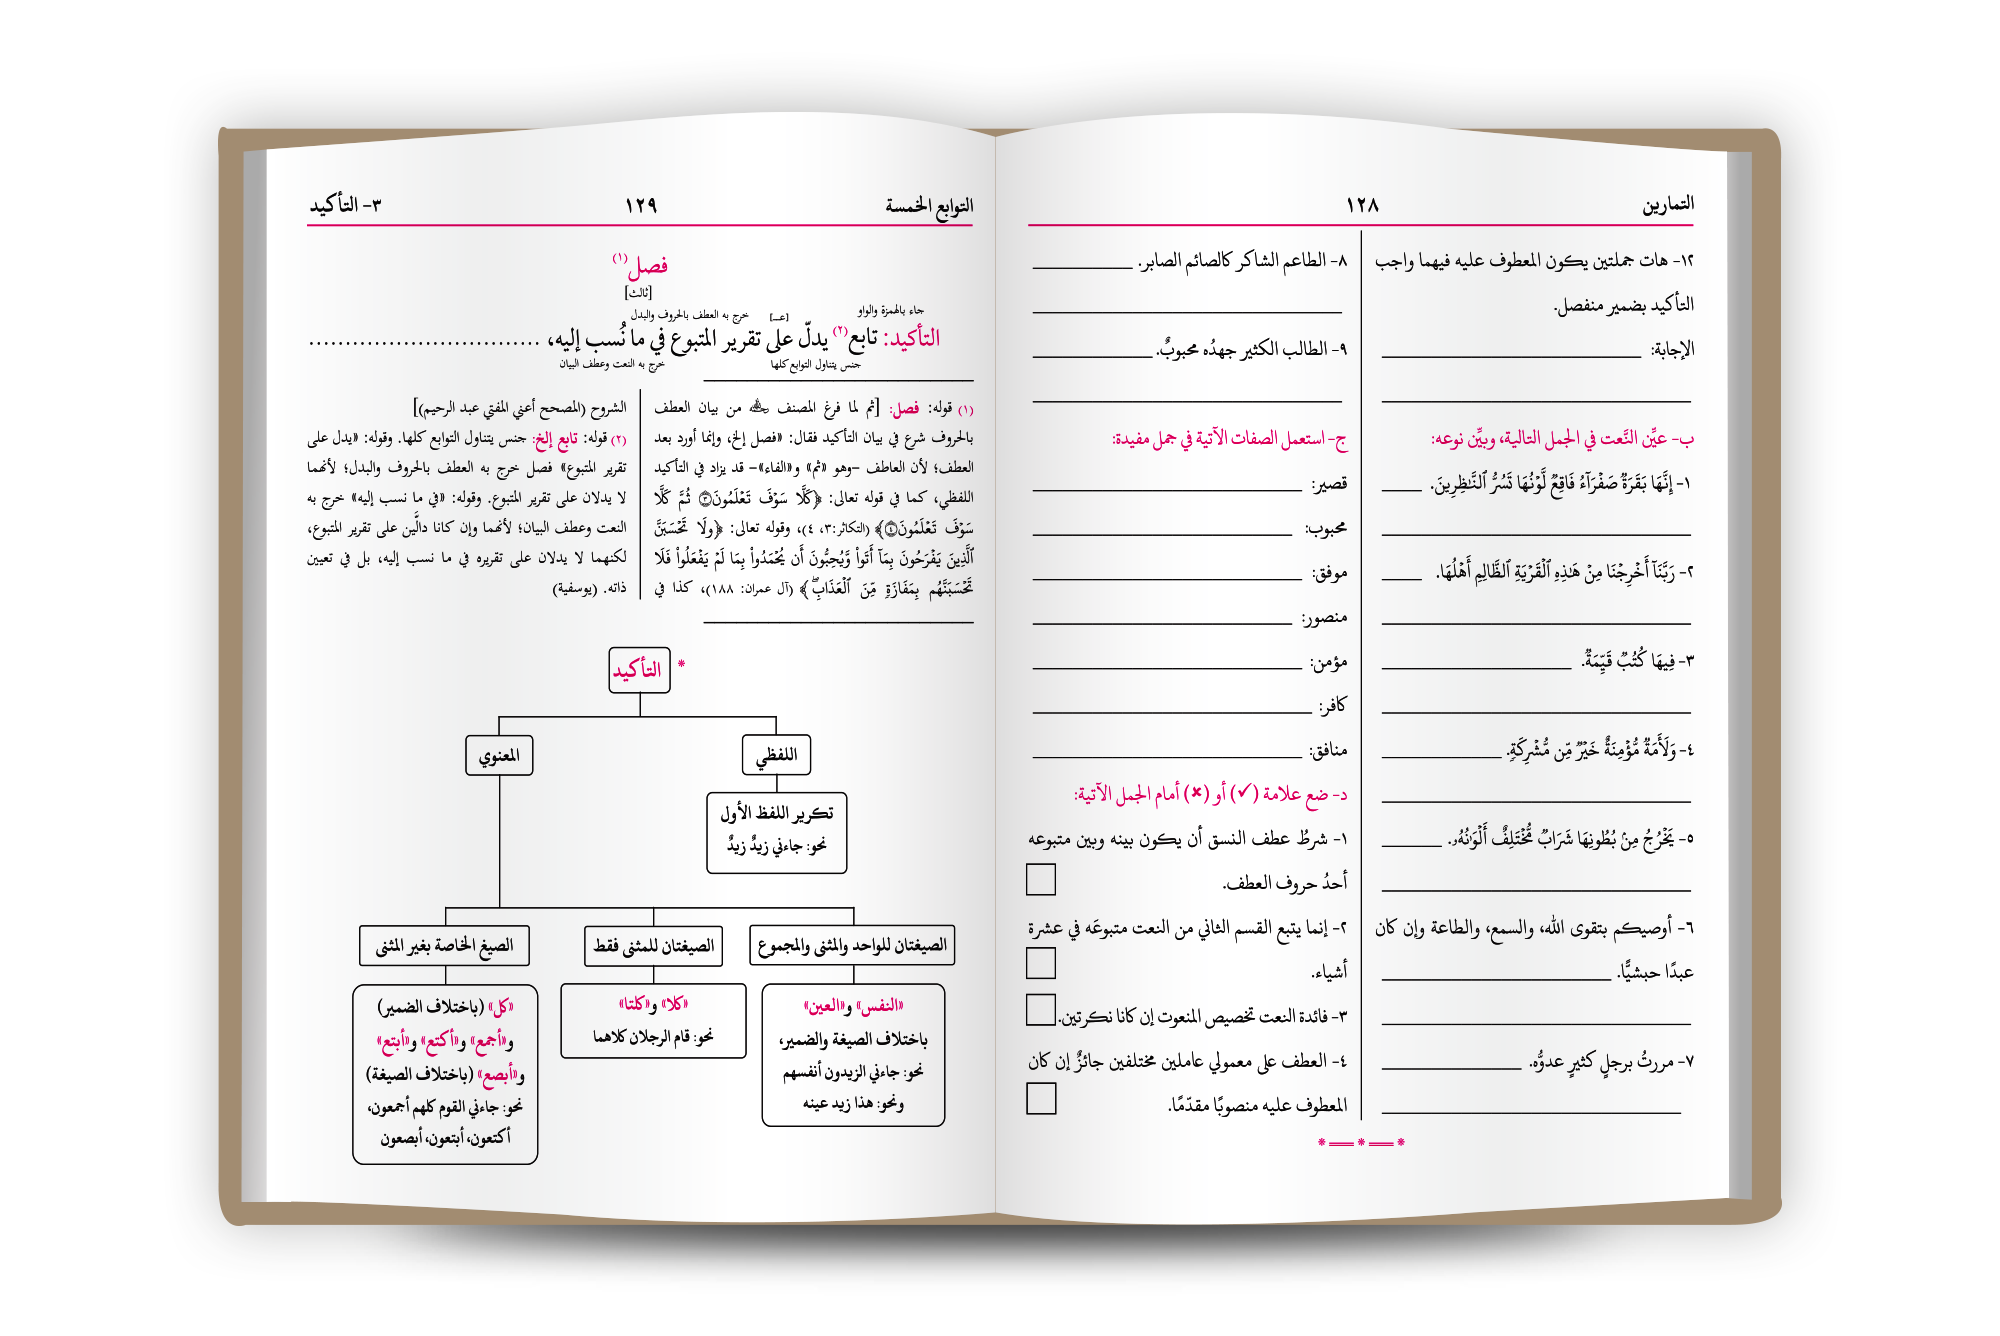 التمارين ١٢٨
١٢- هات جملتين يكون المعطوف عليه فيهما واجب
التأكيد بضمير منفصل.
الإجابة:
ب- عيِّن النَّعت في الجمل التالية، وبيِّن نوعه:
١- إِنَّهَا بَقَرَةٌ صَفْرَآءُ فَاقِعٌ لَّوْنُهَا تَسُرُّ ٱلنَّـٰظِرِينَ.
٢- رَبَّنَآ أَخْرِجْنَا مِنْ هَـٰذِهِ ٱلْقَرْيَةِ ٱلظَّالِمِ أَهْلُهَا.
٣- فِيهَا كُتُبٌ قَيِّمَةٌ.
٤- وَلَأَمَةٌ مُّؤْمِنَةٌ خَيْرٌ مِّن مُّشْرِكَةٍ.
٥- يَخْرُجُ مِنۢ بُطُونِهَا شَرَابٌ مُّخْتَلِفٌ أَلْوَٰنُهُۥ.
٦- أوصيكم بتقوى الله، والسمع، والطاعة وإن كان
عبدًا حبشيًّا.
٧- مررتُ برجلٍ كثيرٍ عدوُّه.
٨- الطاعم الشاكر كالصائم الصابر.
٩- الطالب الكثير جهدُه محبوبٌ.
ج- استعمل الصفات الآتية في جمل مفيدة:
قصير:
محبوب:
موفق:
منصور:
مؤمن:
كافر:
منافق:
د- ضع علامة (✓) أو (✗) أمام الجمل الآتية:
١- شرطُ عطف النسق أن يكون بينه وبين متبوعه
أحدُ حروف العطف.
٢- إنما يتبع القسم الثاني من النعت متبوعَه في عشرة
أشياء.
٣- فائدة النعت تخصيص المنعوت إن كانا نكرتين.
٤- العطف على معمولي عاملين مختلفين جائزٌ إن كان
المعطوف عليه منصوبًا مقدّمًا.
التوابع الخمسة ١٢٩ ٣- التأكيد
فصل(١)
[ثالث]
جاء بالهمزة والواو [عـ] خرج به العطف بالحروف والبدل
التأكيد: تابع(٢) يدلّ على تقرير المتبوع في ما نُسب إليه، ................................
جنس يتناول التوابع كلها خرج به النعت وعطف البيان
(١) قوله: فصل: [ثم لما فرغ المصنف من بيان العطف
بالحروف شرع في بيان التأكيد فقال: «فصل إلخ، وإنما أورد بعد
العطف؛ لأن العاطف -وهو «ثم» و«الفاء»- قد يزاد في التأكيد
اللفظي، كما في قوله تعالى: ﴿كَلَّا سَوْفَ تَعْلَمُونَ۝٣ ثُمَّ كَلَّا
سَوْفَ تَعْلَمُونَ۝٤﴾ (التكاثر:٣، ٤)، وقوله تعالى: ﴿وَلَا تَحْسَبَنَّ
ٱلَّذِينَ يَفْرَحُونَ بِمَآ أَتَواْ وَّيُحِبُّونَ أَن يُحْمَدُواْ بِمَا لَمْ يَفْعَلُواْ فَلَا
تَحْسَبَنَّهُم بِمَفَازَةٍ مِّنَ ٱلْعَذَابِۖ﴾ (آل عمران: ١٨٨)، كذا في
الشروح (المصحح أعني المفتي عبد الرحيم)]
(٢) قوله: تابع إلخ: جنس يتناول التوابع كلها. وقوله: «يدل على
تقرير المتبوع» فصل خرج به العطف بالحروف والبدل؛ لأنهما
لا يدلان على تقرير المتبوع. وقوله: «في ما نسب إليه» خرج به
النعت وعطف البيان؛ لأنهما وإن كانا دالَّين على تقرير المتبوع،
لكنهما لا يدلان على تقريره في ما نسب إليه، بل في تعيين
ذاته. (يوسفية)
* التأكيد
اللفظي
المعنوي
تكرير اللفظ الأول
نحو: جاءني زيدٌ زيدٌ
الصيغتان للواحد والمثنى والمجموع
الصيغتان للمثنى فقط
الصيغ الخاصة بغير المثنى
«النفس» و«العين»
باختلاف الصيغة والضمير،
نحو: جاءني الزيدون أنفسهم
ونحو: هذا زيد عينه
«كلا» و«كلتا»
نحو: قام الرجلان كلاهما
«كل» (باختلاف الضمير)
و«أجمع» و«أكتع» و«أبتع»
و«أبصع» (باختلاف الصيغة)
نحو: جاءني القوم كلهم أجمعون،
أكتعون، أبتعون، أبصعون